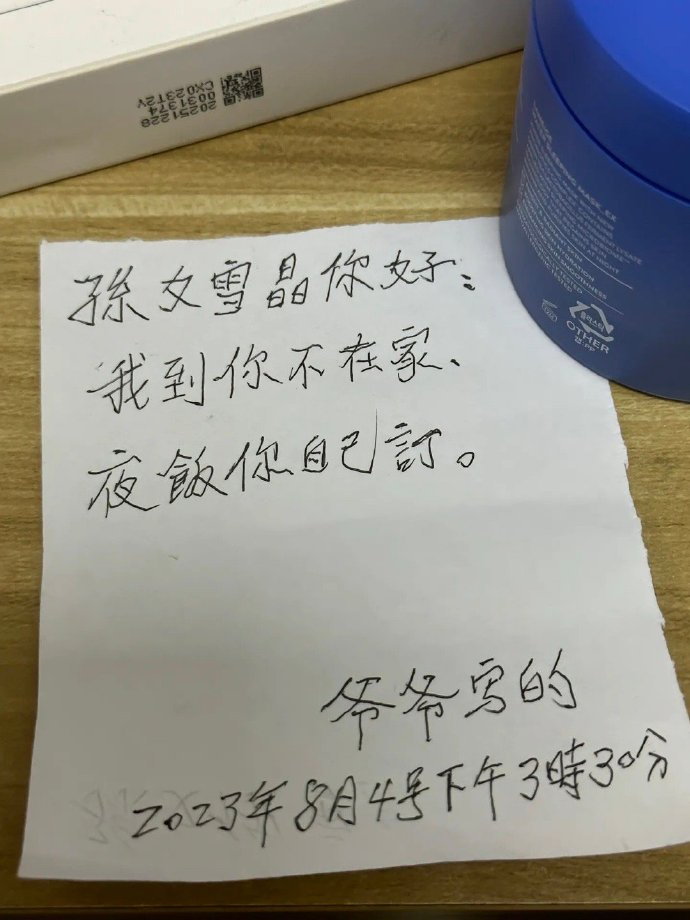 20251228
0031374
CX023T2V
SLEEPING MASK_EX
OTHER
孫女雪晶你好：
我到你不在家、
夜飯你自己訂。
爷爷写的
2023年8月4号下午3時30分